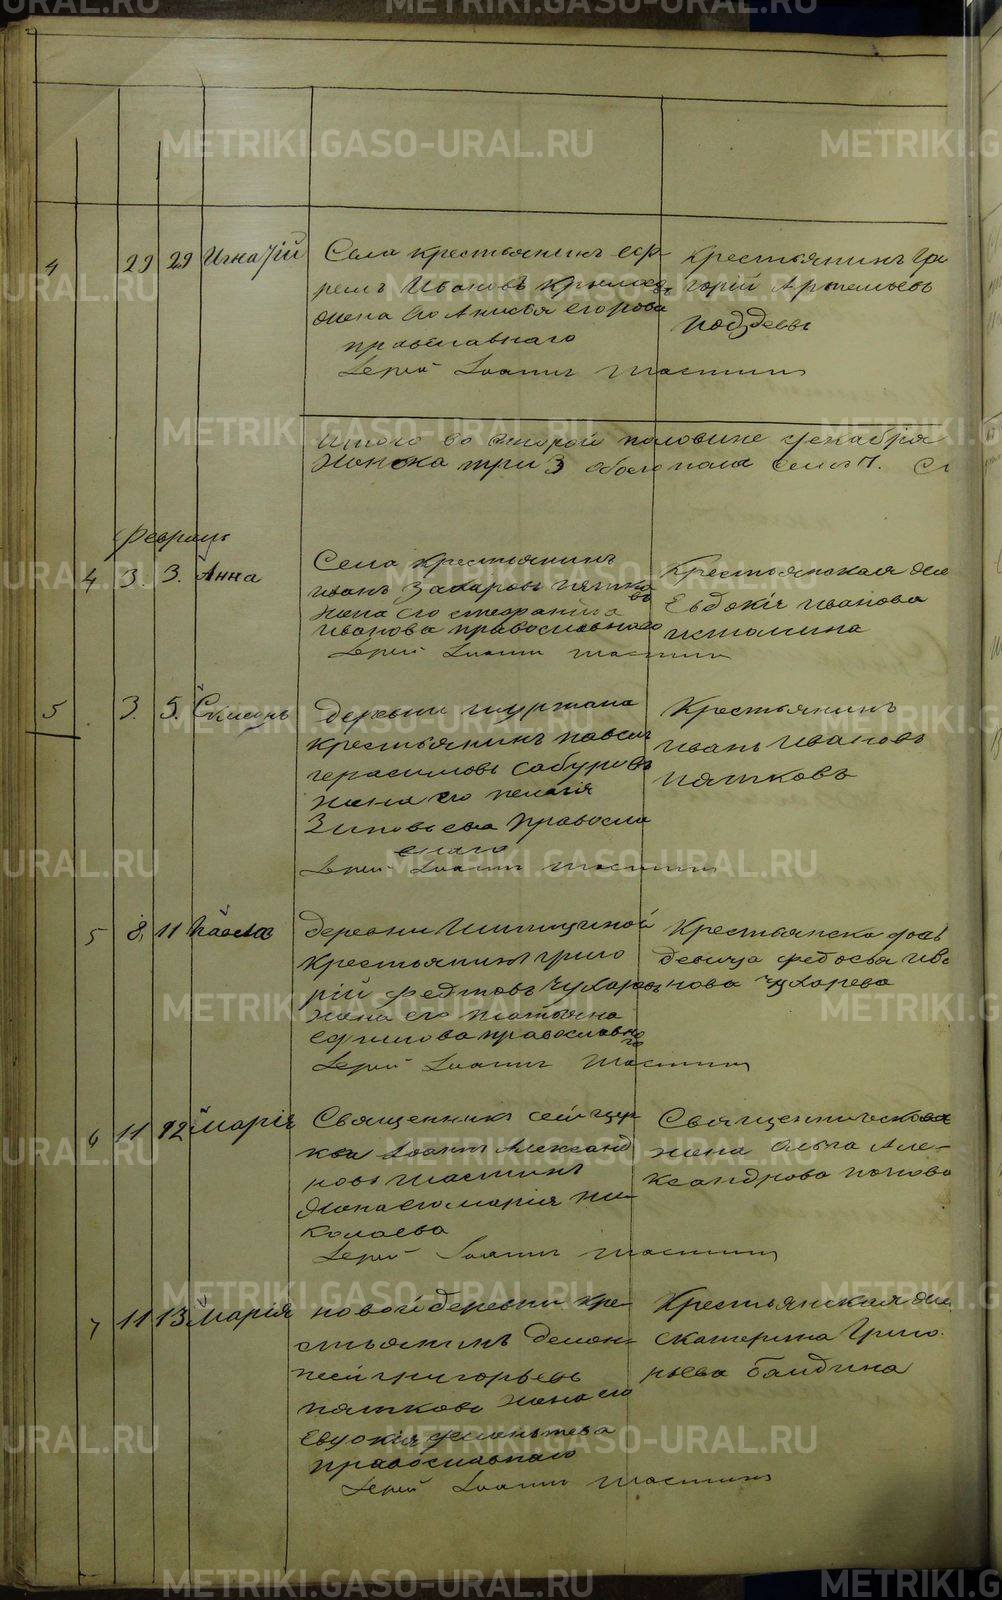 4 29 29 Игнатій Села крестьянинъ Еф-
ремъ Ивановъ
жена его Анисья Егорова
православнаго
Іерей Іоаннъ
Крестьянинъ Гри
горій Артемьевъ
Поздѣевъ
Итого во второй половине
три 3 обоего пола семь 7.
Февраль
4 3. 3. Анна Села крестьянинъ
Иванъ Захаровъ Пятко
въ
жена его Стефанида
Иванова православнаго
Іерей Іоаннъ
Крестьянская же
Евдокія Иванова
Истомина
5 3. 5. Симеонъ деревни
крестьянинъ Павелъ
Герасимовъ Сабуровъ
жена его Пелагія
Зиновьева правосла
внаго
Іерей Іоаннъ
Крестьянинъ
Иванъ Ивановъ
Пятковъ
5 8, 11 Павелъ деревни
крестьянинъ Григо
рій Чухаревъ
жена его Татьяна
Ефимова православна
го
Іерей Іоаннъ
Крестьянска доч
девица Федосья Ива
нова Чухарева
6 11 12 Марія Священникъ сей цер
кви Іоаннъ Александ
ровъ
жена его Марія Ни-
колаева
Іерей Іоаннъ
Священническая
жена Ольга Але-
ксандрова Попова
7 11 13 Марія Новой деревни кре-
стьянинъ Демен-
тій Григорьевъ
Пятковъ жена его
Евдокія
православнаго
Іерей Іоаннъ
Крестьянская же
Екатерина Григо.
рьева Бандина
METRIKI.GASO-URAL.RU